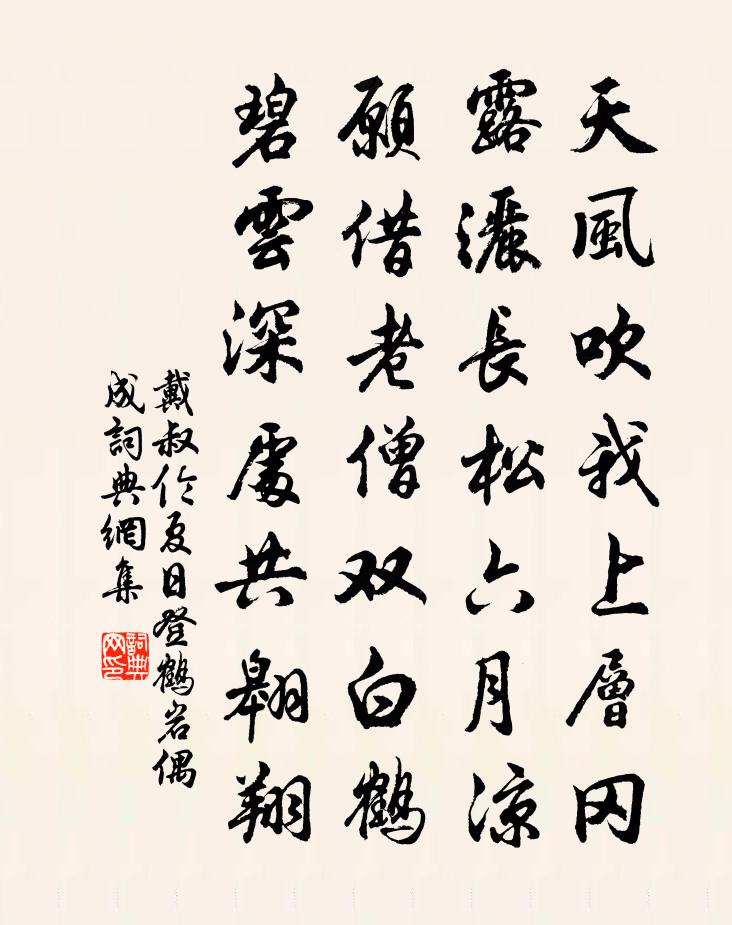 天風吹我上層冈
露灑長松六月涼
願借老僧双白鶴
碧雲深處共翱翔
戴叔伦夏日登鶴岩偶
成詞典網集
詞典网印